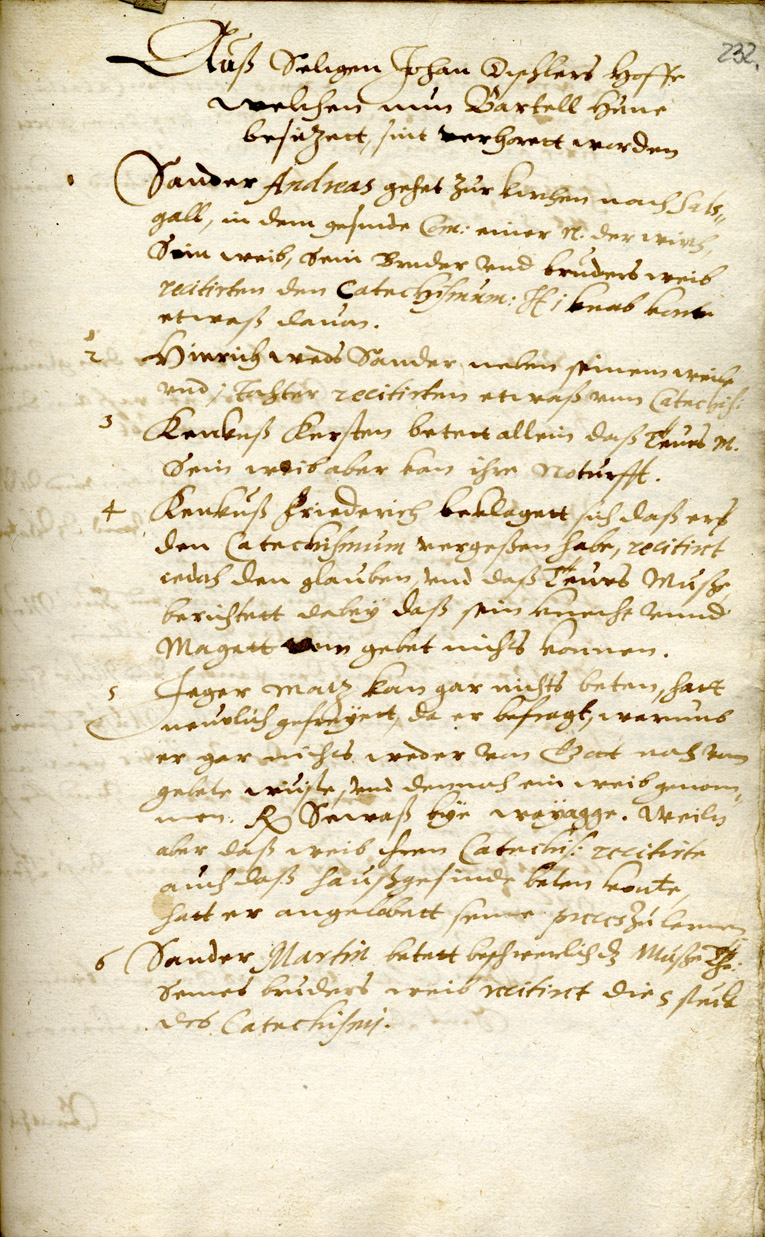 232.
Auß Seligen Johan Dischlers Hoffe
welchen nun Bartell Hune
besitzett, sint verhorett worden
1 Sander Andreas gehet zur kirchen nach Sals,,
gall, in dem gesinde Com: einer N. der wirth,
Sein weib, Sein Bruder vnd bruders weib
recitirten den Catechismum: It 1 knab konte
etwaß dauon.
2 Hinrich weds Sander neben seinem weibe
vnd 1 Tochter recitirten etwaß vom Catechis:
3 Kenkuß Kersten betett allein daß Teues M.
Sein weib aber kan ihre Noturfft.
4 Kenkuß Friederich beklagett sich daß ers
den Catechismum vergeßen habe, recitirt
iedoch den glauben, vnd daß Teues Muße,
berichtett dabey daß sein knecht vnnd
Magett vom gebet nichts konnen.
5 Jeger Matz kan gar nichts beten, hatt
neulich gefreyett, da er befragt, warumb
er gar nichts weder von Gott noch vom
gebete wuste, vnd dennoch ein weib genom,,
men. R. Sewaß bye weyagge. Weiln
aber daß weib ihren Catechis: recitirte
auch daß haußgesinde beten konte,
hatt er angelobett seine preces zu lernen
6 Sander Martin betett beschwerlich dz Muße Te:
Seines bruders weib recitirt die 5 stuck
des Catechismi.